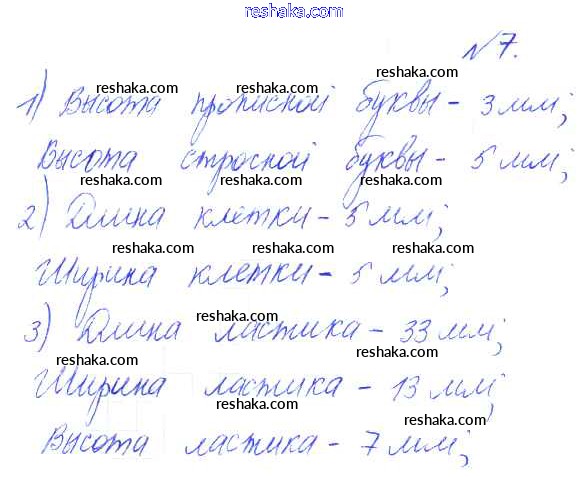 reshaka.com
№7.
reshaka.com
reshaka.com reshaka.com
1) Высота прописной буквы - 3 мм;
reshaka.com reshaka.com
Высота стросной буквы - 5 мм;
reshaka.com reshaka.com
2) Длина клетки - 5 мм;
reshaka.com reshaka.com
Ширина клетки - 5 мм;
reshaka.com
3) Длина ластика - 33 мм;
reshaka.com
Ширина ластика - 13 мм;
reshaka.com reshaka.com
Высота ластика - 7 мм;